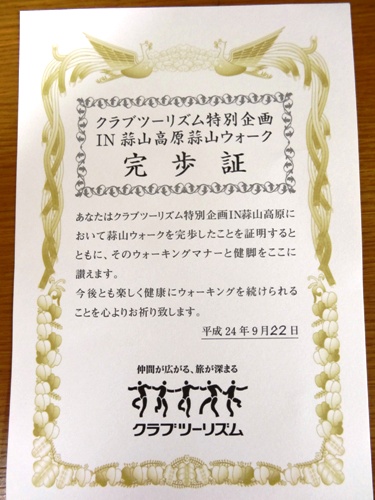 クラブツーリズム特別企画
IN 蒜山高原蒜山ウォーク
完歩証
あなたはクラブツーリズム特別企画IN蒜山高原に
おいて蒜山ウォークを完歩したことを証明すると
ともに、そのウォーキングマナーと健脚をここに
讃えます。
今後とも楽しく健康にウォーキングを続けられる
ことを心よりお祈り致します。
平成24年9月22日
仲間が広がる、旅が深まる
クラブツーリズム